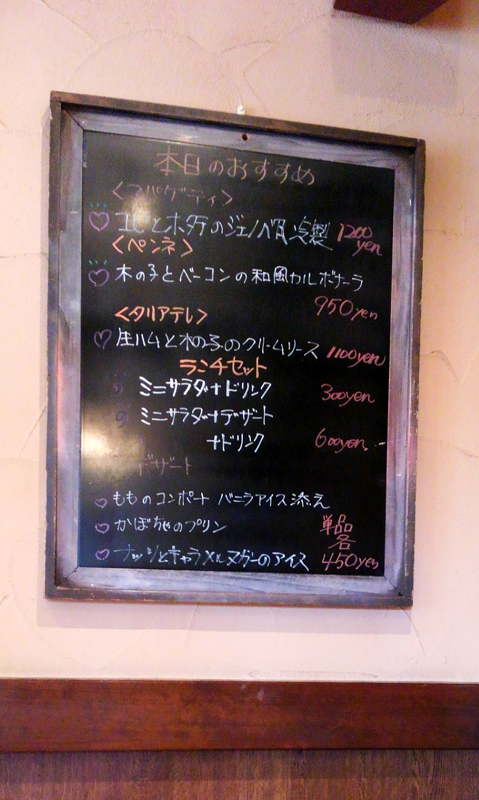 本日のおすすめ
<スパゲティ>
エビとホタテのジェノベーゼ 冷製 1200yen
<ペンネ>
木の子とベーコンの和風カルボナーラ
950yen
<タリアテレ>
生ハムと木の子のクリームソース 1100yen
ランチセット
ミニサラダ+ドリンク 300yen
ミニサラダ+デザート
+ドリンク 600yen
デザート
もものコンポート バニラアイス添え
かぼちゃのプリン 単品
各
ナッツとキャラメルヌガーのアイス 450yen